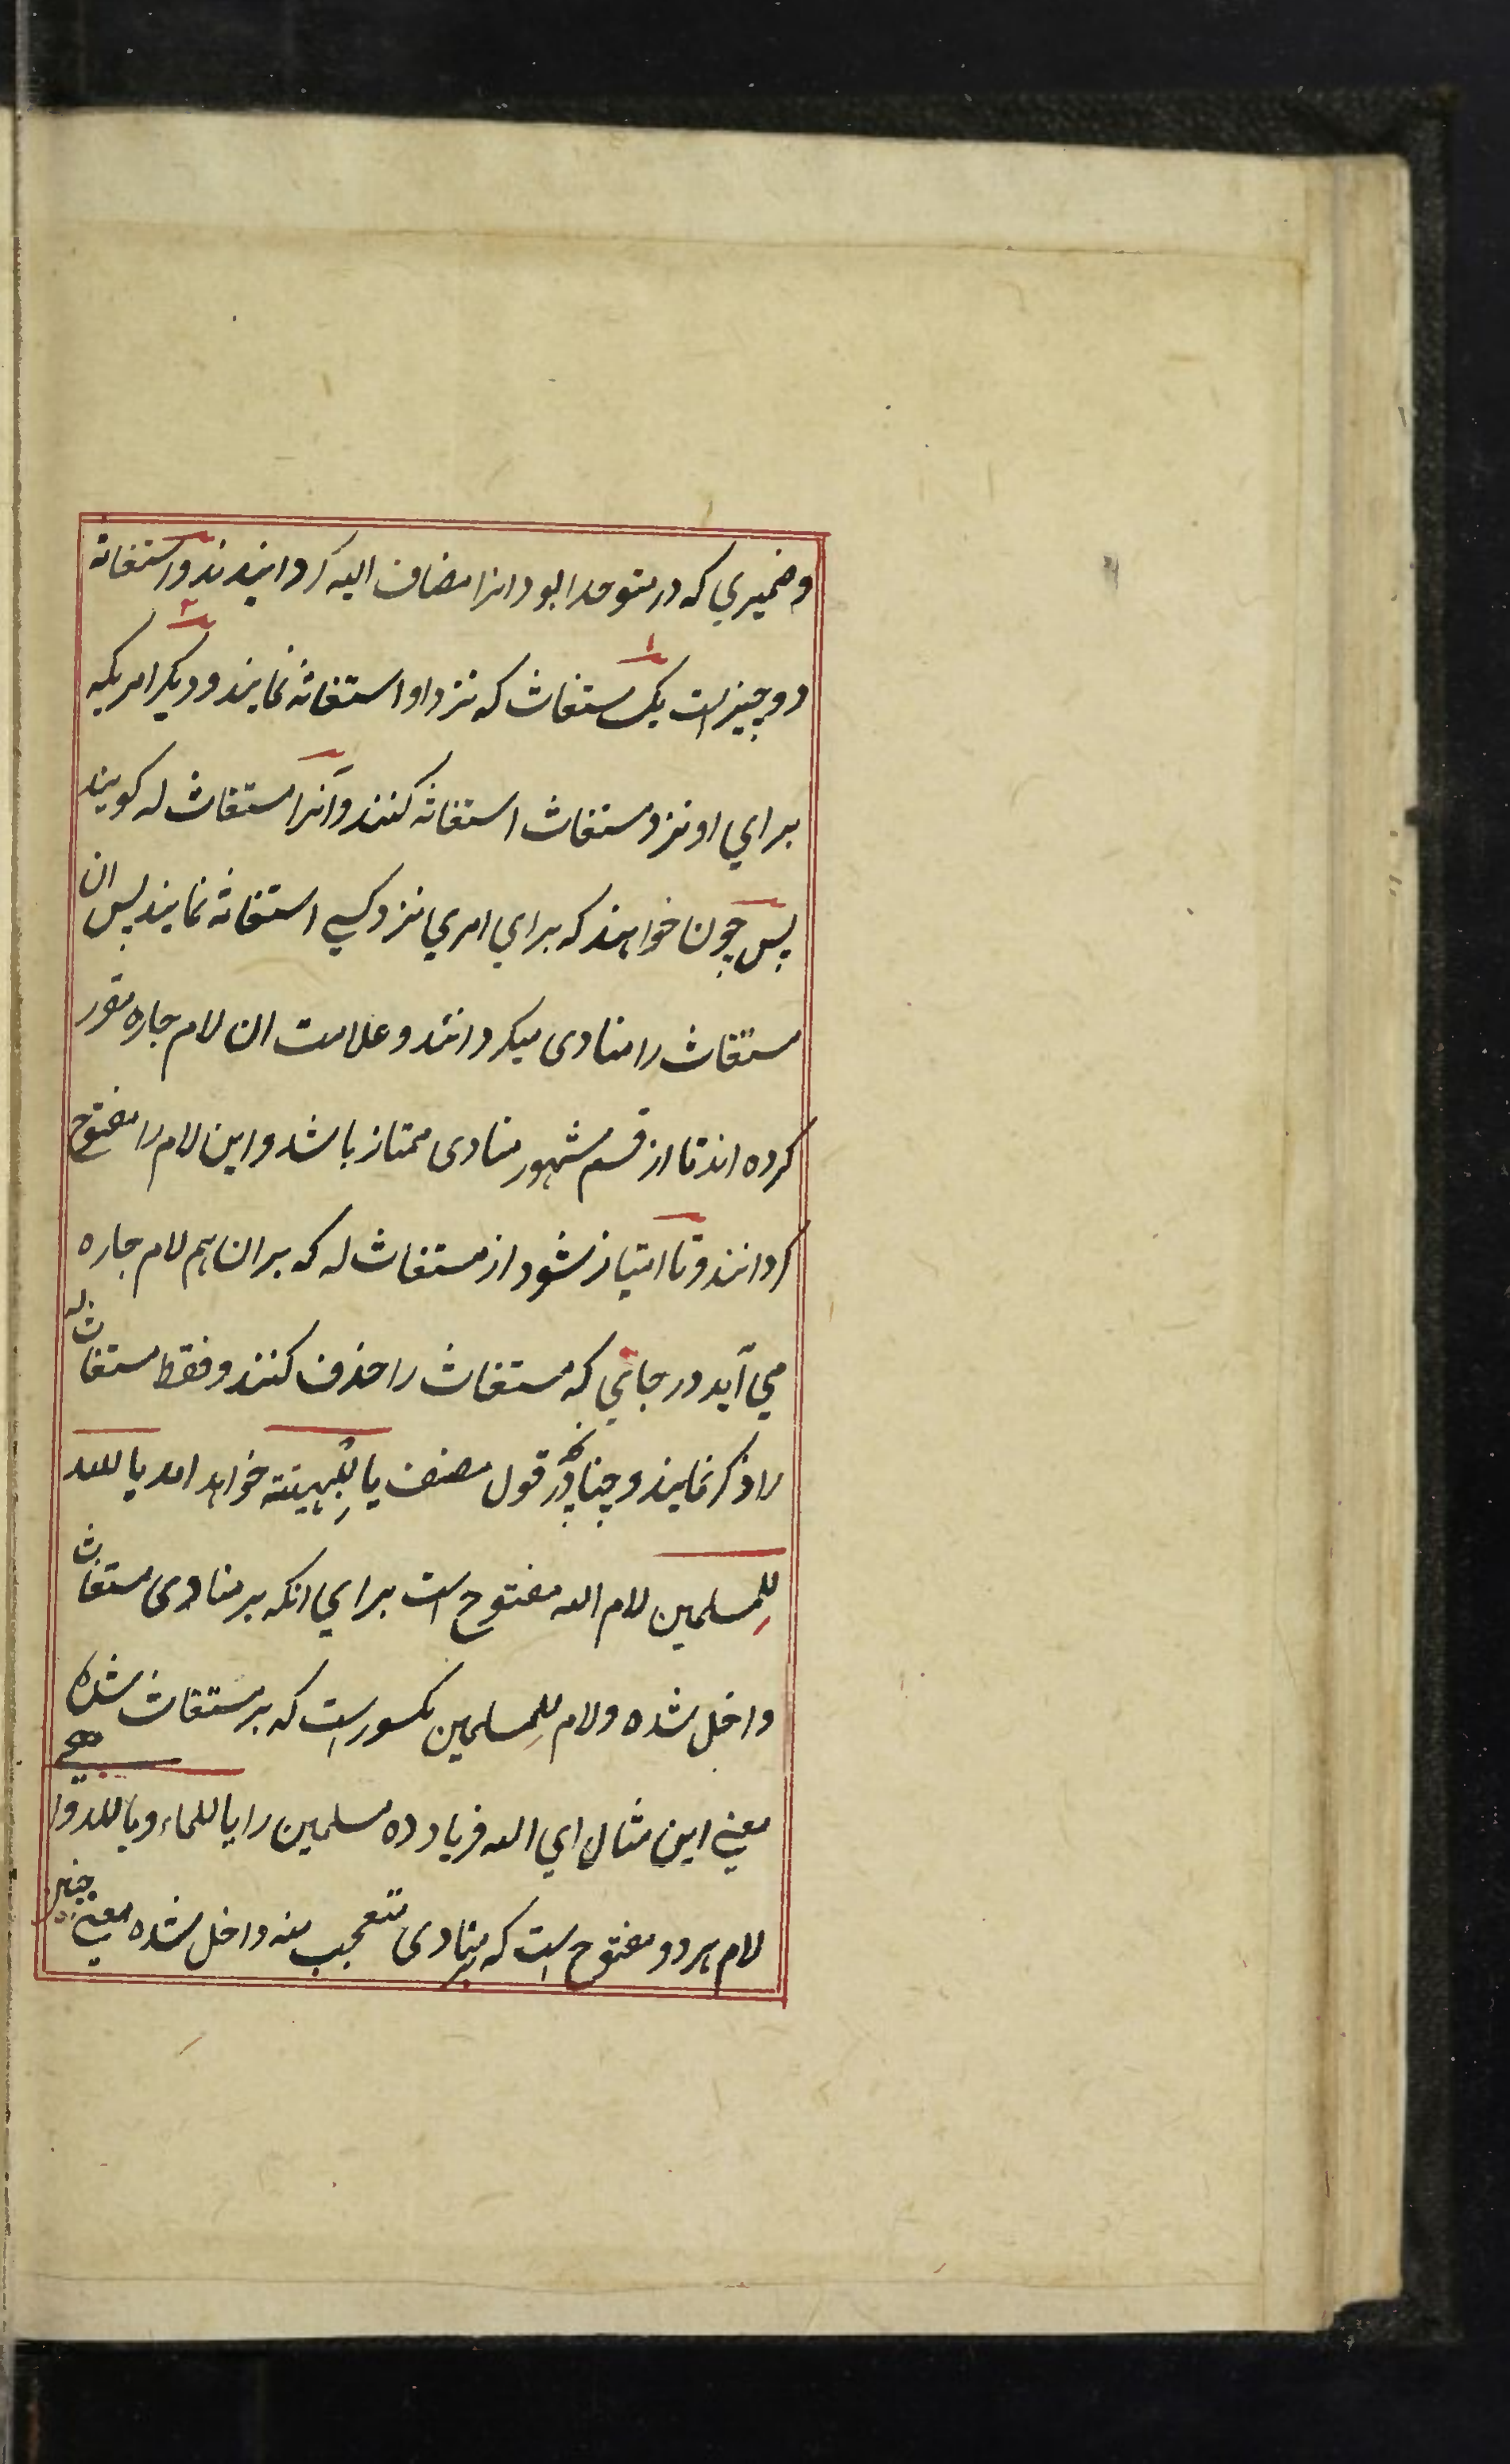 وضمیری که در متوحدا بود انرا مضاف الیه کردانیدند و استغاثه
دو چیز است یک مستغاث که نزد او استغاثه نمایند و دیکر امریکه
برای او نزد مستغاث استغاثه کنند و آنرا مستغاث له کویند
پس چون خواهند که برای امری نزد کسی استغاثه نمایند پس ان
مستغاث را منادی میکردانند و علامت ان لام جاره مقرر
کرده اند تا از قسم مشهور منادی ممتاز باشد و این لام را مفتوح
کردانند و تا امتیاز شود از مستغاث له که بران هم لام جاره
می آید در جائی که مستغاث را حذف کنند و فقط مستغاث له
را ذکر نمایند و چنانکه در قول مصنف یا للبهیتة خواهد امد یا لله
للمسلمین لام الله مفتوح است برای انکه بر منادی مستغاث
داخل شده و لام للمسلمین مکسور است که بر مستغاث شده
معنی این مثال ای الله فریاد ده مسلمین را یا للماء و یا للدوا
لام هر دو مفتوح است که بر منادی متعجب منه داخل شده معنی چنین